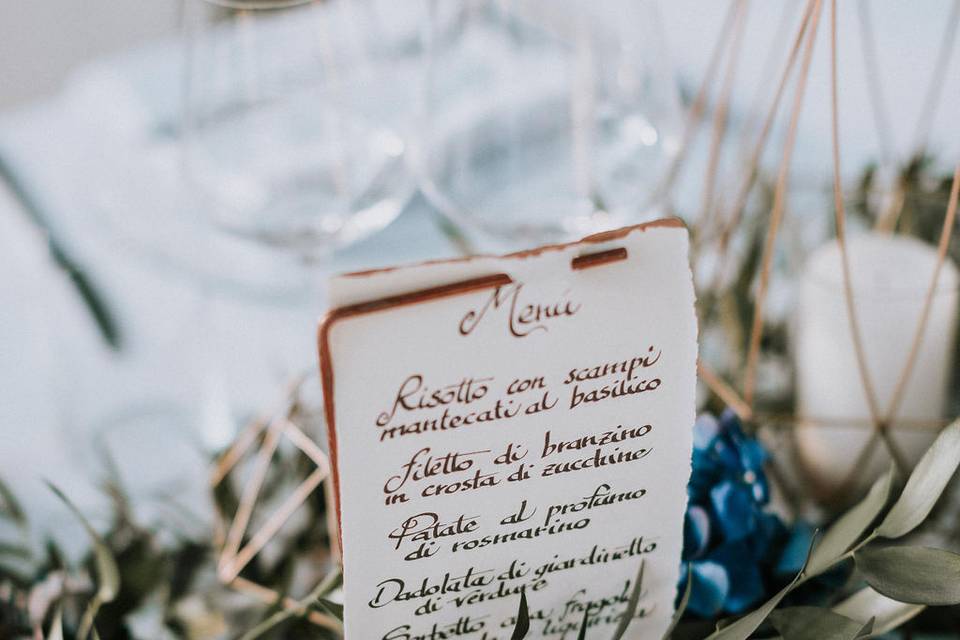 Menù
Risotto con scampi
mantecati al basilico
Filetto di branzino
in crosta di zucchine
Patate al profumo
di rosmarino
Dadolata di giardinetto
di verdure
Sorbetto alla fragola